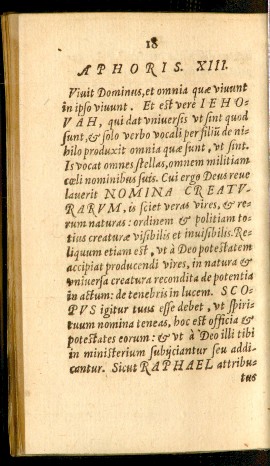 18
APHORIS. XIII.
Viuit Dominus, et omnia quæ viuunt
in ipso viuunt. Et est verè IEHO-
VAH, qui dat vniuersis vt sint quod
sunt, & solo verbo vocali per filiũ de ni-
hilo produxit omnia quæ sunt, vt sint.
Is vocat omnes stellas, omnem militiam
cœli nominibus suis. Cui ergo Deus reue
lauerit NOMINA CREATV-
RARVM, is sciet veras vires, & re-
rum naturas: ordinem & politiam to-
tius creaturæ visibilis et inuisibilis. Re-
liquum etiam est, vt à Deo potestatem
accipiat producendi vires, in natura &
vniuersa creatura recondita de potentia
in actum: de tenebris in lucem. SCO-
PVS igitur tuus esse debet, vt spiri-
tuum nomina teneas, hoc est officia &
potestates eorum: & vt à Deo illi tibi
in ministerium subijciantur seu addi-
cantur. Sicut RAPHAEL attribu-
tus